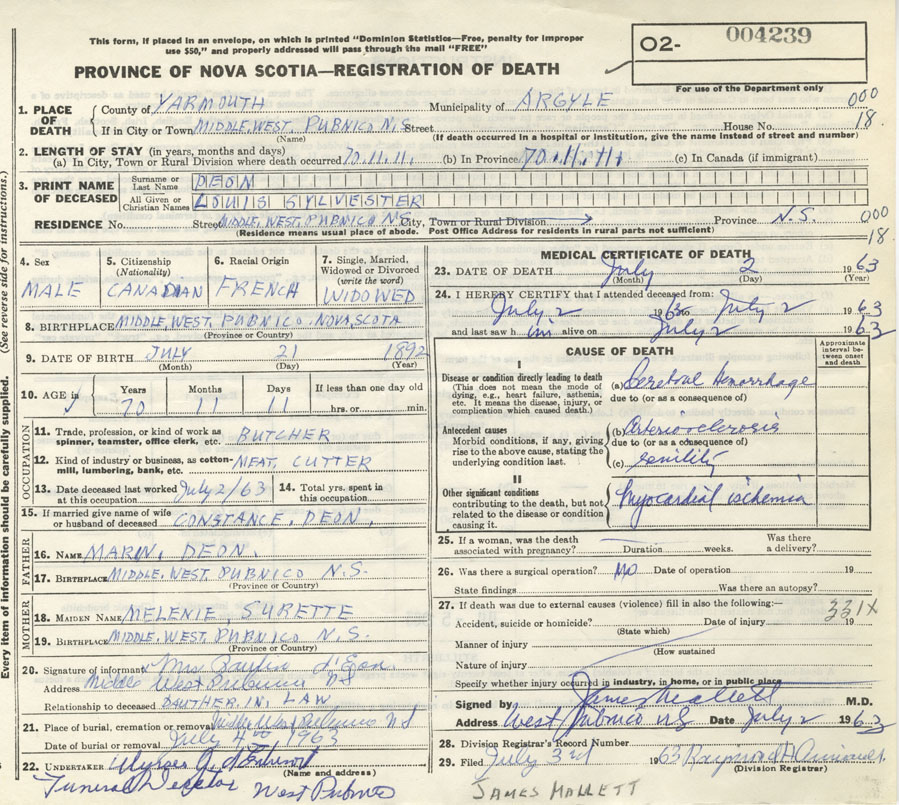 This form, if placed in an envelope, on which is printed "Dominion Statistics—Free, penalty for improper
use $50," and properly addressed will pass through the mail "FREE"
O2- 004239
PROVINCE OF NOVA SCOTIA—REGISTRATION OF DEATH
For use of the Department only
1. PLACE OF DEATH County of YARMOUTH Municipality of ARGYLE 000
If in City or Town MIDDLE, WEST, PUBNICO N.S. Street House No. 18
(Name) (If death occurred in a hospital or institution, give the name instead of street and number)
2. LENGTH OF STAY (in years, months and days)
(a) In City, Town or Rural Division where death occurred 70.11.11. (b) In Province 70.11.11. (c) In Canada (if immigrant)
3. PRINT NAME OF DECEASED
Surname or Last Name DEON
All Given or Christian Names LOUIS SYLVESTER
RESIDENCE No. Street MIDDLE, WEST, PUBNICO N.S. City, Town or Rural Division Province N.S. 000
(Residence means usual place of abode. Post Office Address for residents in rural parts not sufficient) 18
4. Sex MALE
5. Citizenship (Nationality) CANADIAN
6. Racial Origin FRENCH
7. Single, Married, Widowed or Divorced (write the word) WIDOWED
8. BIRTHPLACE MIDDLE, WEST, PUBNICO. NOVA, SCOTA
(Province or Country)
9. DATE OF BIRTH JULY 21 1892
(Month) (Day) (Year)
10. AGE in Years Months Days If less than one day old
70 11 11 hrs. or min.
OCCUPATION
11. Trade, profession, or kind of work as spinner, teamster, office clerk, etc. BUTCHER
12. Kind of industry or business, as cotton-mill, lumbering, bank, etc. MEAT, CUTTER
13. Date deceased last worked at this occupation July 2/63 14. Total yrs. spent in this occupation
15. If married give name of wife or husband of deceased CONSTANCE, DEON,
FATHER
16. NAME DEON.
17. BIRTHPLACE MIDDLE, WEST, PUBNICO N.S.
(Province or Country)
MOTHER
18. MAIDEN NAME MELENIE, SURETTE
19. BIRTHPLACE MIDDLE, WEST, PUBNICO N.S.
(Province or Country)
20. Signature of informant Mrs d'Eon.
Address Middle West Pubnico NS
Relationship to deceased DAUTHER, IN, LAW
21. Place of burial, cremation or removal Middle West Pubnico NS
Date of burial or removal July 1963
22. UNDERTAKER
(Name and address)
Funeral Director West Pubnico
MEDICAL CERTIFICATE OF DEATH
23. DATE OF DEATH July 2 1963
(Month) (Day) (Year)
24. I HEREBY CERTIFY that I attended deceased from:
July 2 1963 to July 2 1963
and last saw h im alive on July 2 1963
CAUSE OF DEATH
Approximate interval between onset and death
I
Disease or condition directly leading to death
(This does not mean the mode of dying, e.g., heart failure, asthenia, etc. It means the disease, injury, or complication which caused death.)
(a) Cerebral Hemorrhage
due to (or as a consequence of)
Antecedent causes
Morbid conditions, if any, giving rise to the above cause, stating the underlying condition last.
(b) arteriosclerosis
due to (or as a consequence of)
(c) senility
II
Other significant conditions
contributing to the death, but not related to the disease or condition causing it.
Myocardial ischemia
25. If a woman, was the death associated with pregnancy? Duration weeks. Was there a delivery?
26. Was there a surgical operation? NO Date of operation 19
State findings Was there an autopsy?
27. If death was due to external causes (violence) fill in also the following:— 331X
Accident, suicide or homicide? Date of injury 19
(State which)
Manner of injury
(How sustained
Nature of injury
Specify whether injury occurred in industry, in home, or in public place
Signed by James Mallett M.D.
Address West Pubnico NS Date July 2 1963
28. Division Registrar's Record Number
29. Filed July 3rd 1963 Raymond
(Division Registrar)
JAMES MALLETT
Every item of information should be carefully supplied. (See reverse side for instructions.)